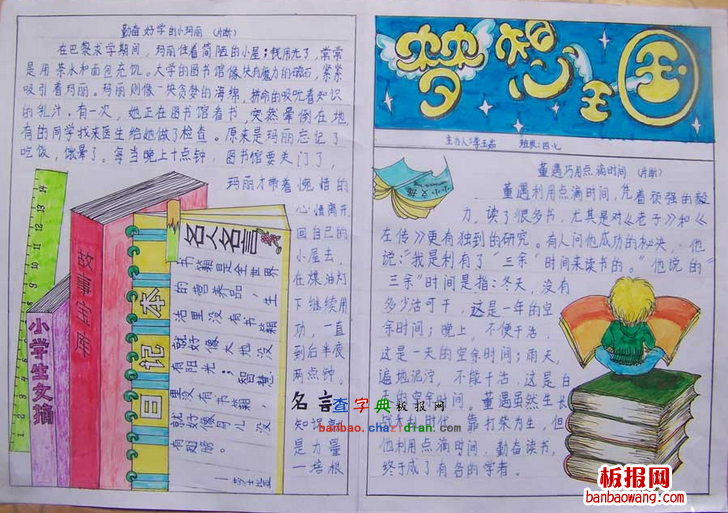 勤奋好学的小玛丽(片断)
在巴黎求学期间,玛丽住着简陋的小屋;钱用光了,常常
是用茶水和面包充饥。大学的图书馆像块有魔力的磁石,紧紧
吸引着玛丽。玛丽则像一块贪婪的海绵,拼命的吸吮着知识
的乳汁。有一次,她正在图书馆看书,突然晕倒在地
有的同学找来医生给她做了检查。原来是玛丽忘记了
吃饭,饿晕了。每当晚上十点钟,图书馆要关门了,
玛丽才带着惋惜的
心情离开
回自己的
小屋去,
在煤油灯
下继续用
功,一直
到后半夜
两点钟。
名言
知识就
是力量
—培根
故事宝库
小学生文摘
日记本
名人名言
书籍是全世界
的营养品,生
活里没有书籍
就好像大地没
有阳光;智慧
里没有书籍,
就好像鸟儿没
有翅膀。
梦想王国
主办人:李玉
班级:四七
董遇巧用点滴时间(片断)
董遇利用点滴时间,凭着顽强的毅
力,读了很多书,尤其是对《老子》和《
左传》更有独到的研究。有人问他成功的秘诀,他
说:"我是利用了"三余"时间来读书的。"他说的"
三余"时间是指:冬天,没有
多少活可干,这是一年的空
余时间;晚上,不便干活,
这是一天的空余时间;雨天,
遍地泥泞,不能干活,这是日
的空余时间。董遇虽然生长
时代,靠打柴为生,但
他利用点滴时间,勤奋读书,
终于成了有名的学者。
查字典板报网
banbao.chazidian.com
板报网
banbaowang.com